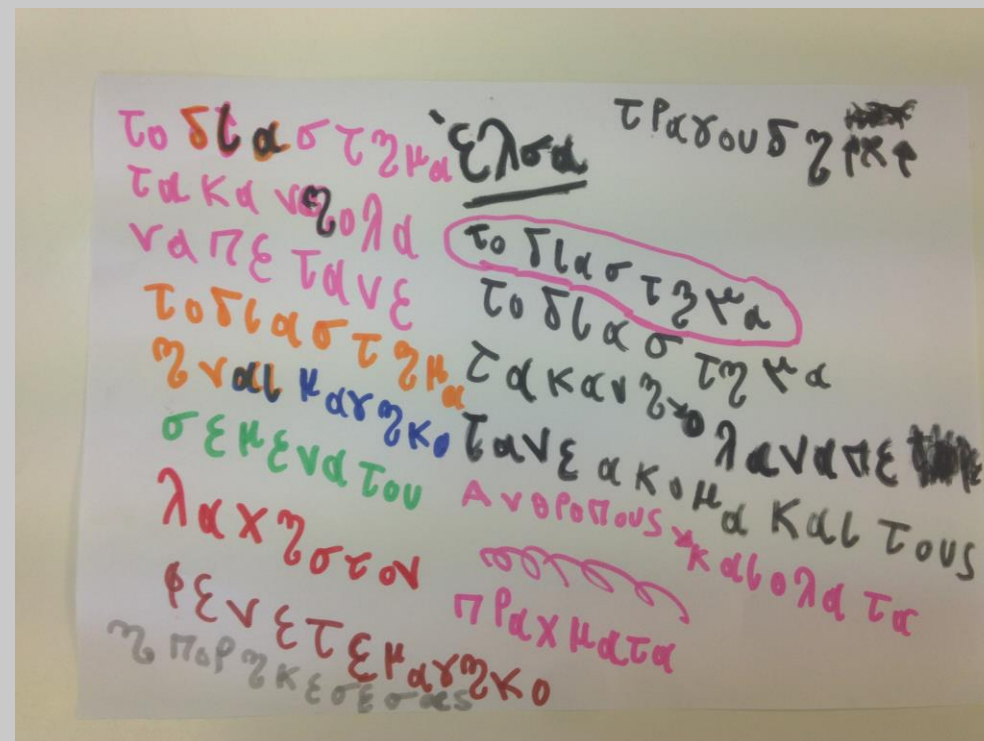 τραγουδη
Έλσα
το διαστημα
τα κανη ολα
να πετανε
το διαστημα
ηναι μαγηκο
σε μενα του
λαχηστον
φενετε μαγηκο
η πορη κε σε σας
το διαστημα
το διαστημα
τα κανη ολα να πε
τανε ακομα και τους
Ανθροπους και ολα τα
πραχματα